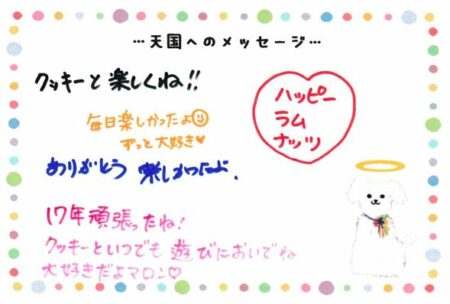 …天国へのメッセージ…
クッキーと楽しくね!!
ハッピー
ラム
ナッツ
毎日楽しかったよ
ずっと大好き♥
ありがとう 楽しかったよ.
17年頑張ったね!
クッキーといつでも遊びにおいでね
大好きだよマロン♡